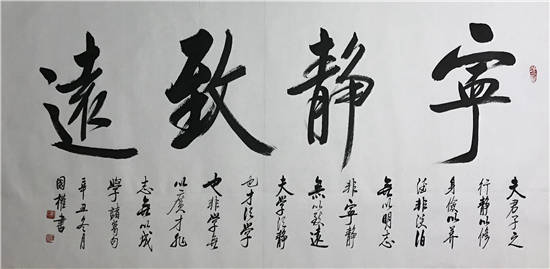 寧静致遠
夫君子之
行静以修
身儉以养
德非淡泊
無以明志
非寧静
無以致遠
夫学须静
也才须学
也非学無
以廣才非
志無以成
學 諸葛句
辛丑冬月
国 書